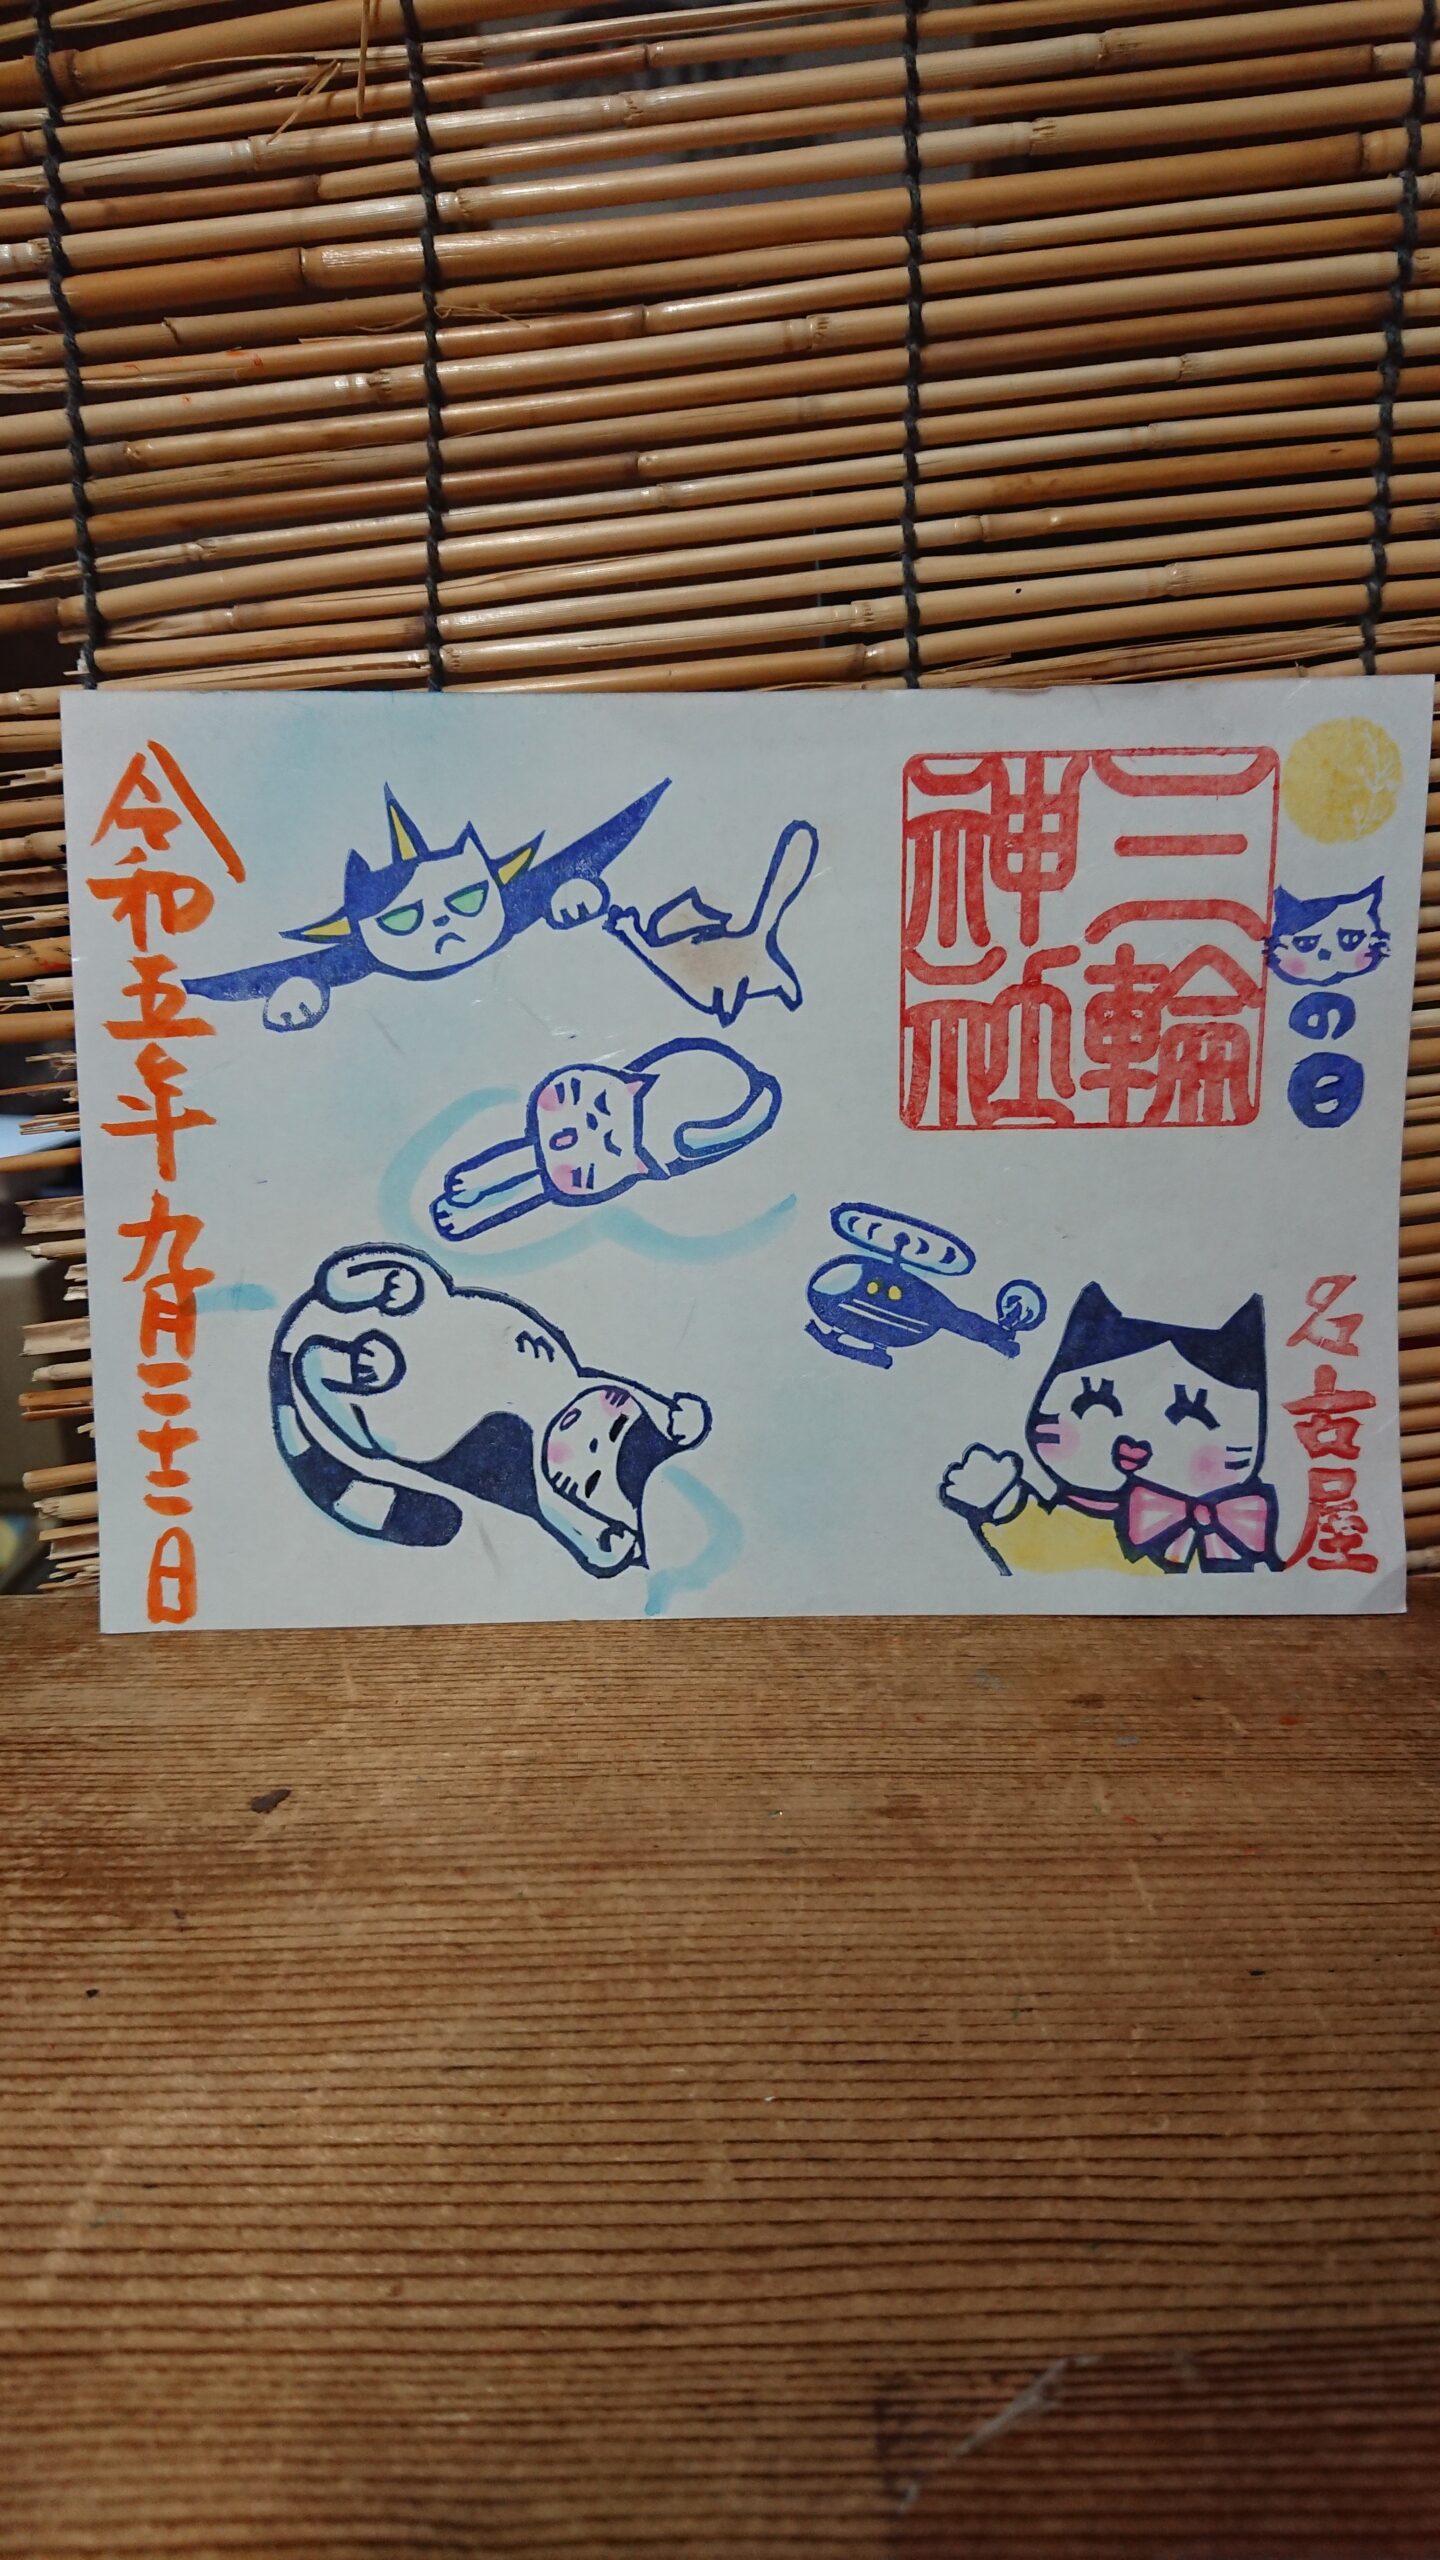 三輪
神社
の日
名古屋
令和五年九月二十二日